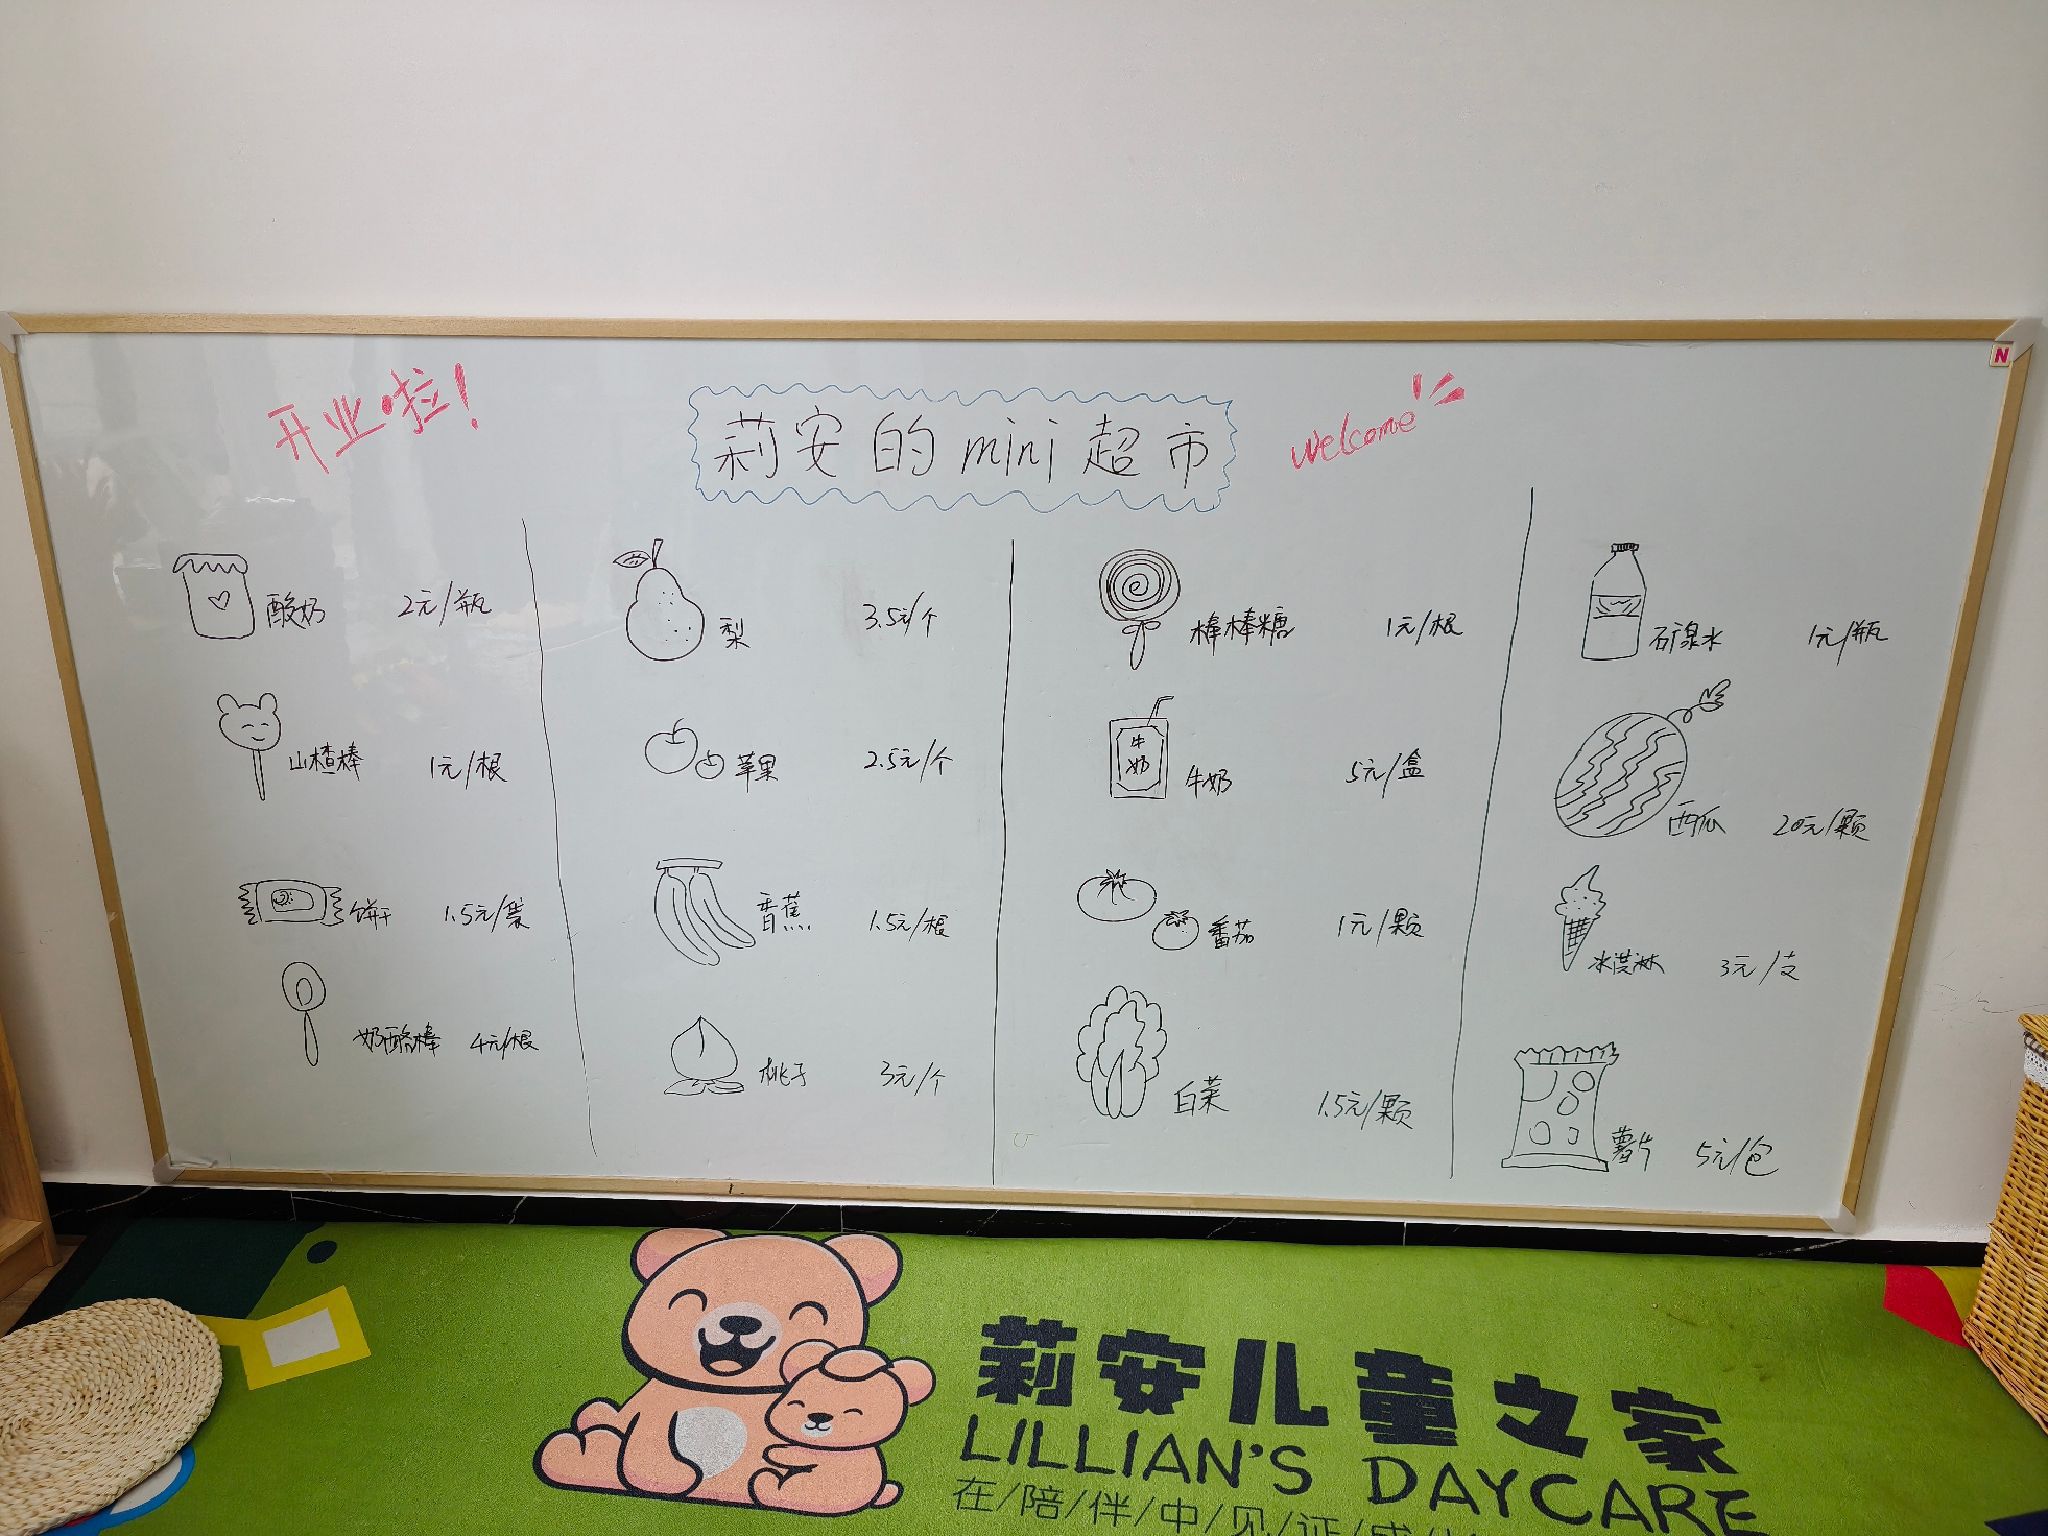 开业啦!
莉安的mini超市
welcome
酸奶 2元/瓶
山楂棒 1元/根
饼干 1.5元/袋
奶酪棒 4元/根
梨 3.5元/个
苹果 2.5元/个
香蕉 1.5元/根
桃子 3元/个
棒棒糖 1元/根
牛奶
牛奶 5元/盒
番茄 1元/颗
白菜 1.5元/颗
石矿泉水 1元/瓶
西瓜 20元/颗
冰淇淋 3元/支
薯片 5元/包
N
莉安儿童之家
LILLIAN'S DAYCARE
在/陪/伴/中/见/证/成